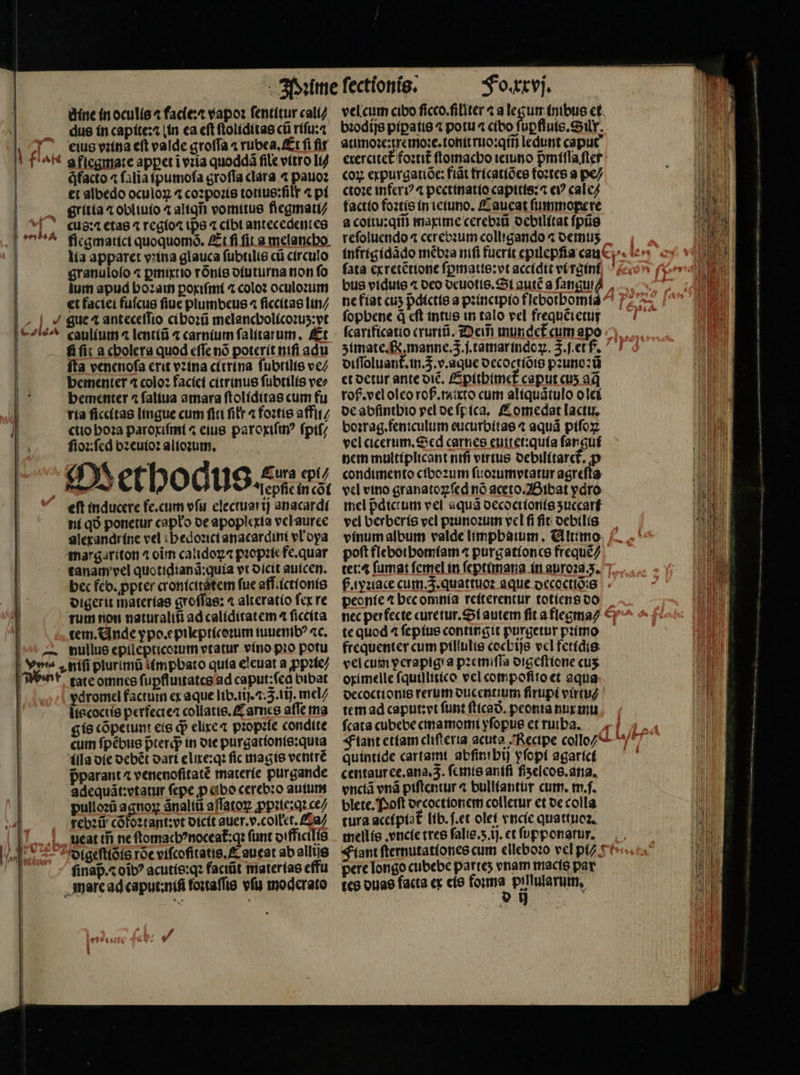 Prime sectionis. Fo.xxvj.
dine in oculis ⁊ facie:⁊ vapoꝛ sentitur cali/
dus in capite:⁊ in ea est stoliditas cū risu:⁊
eius vꝛina est valde grossa ⁊ rubea. Et si sit
a flegmate appet ī vꝛia quoddā sile vitro li/
q̄facto ⁊ salia spumosa grossa clara ⁊ pauoꝛ
et albedo oculoꝝ ⁊ coꝛpoꝛis totius: silr ⁊ pi
gritia ⁊ obliuio ⁊ aliqn̄ vomitus flegmati/
cus:⁊ etas ⁊ regio⁊ tp̄s ⁊ cibi antecedentes
flegmatici quoquomō. Et si sit a melancho
lia apparet vꝛina glauca subtilis cū circulo
granuloso ⁊ ꝑmixtio rōnis diuturna non so
lum apud hoꝛam ꝑoxismi ⁊ coloꝛ oculoꝛum
et faciei fuscus siue plumbeus ⁊ siccitas lin/
gue ⁊ antecessio ciboꝛū melancholicoꝛuȝ: vt
caulium ⁊ lentiū ⁊ carnium salitarum. Et
si sit a cholera quod esse nō poterit nisi adu
sta venenosa erit vꝛina citrina subtilis ve/
hementer ⁊ coloꝛ faciei citrinus subtilis ve/
hementer ⁊ saliua amara stoliditas cum fu
ria siccitas lingue cum siti silr ⁊ foꝛtis affli/
ctio hoꝛa paroxismi ⁊ eius paroxismꝰ spis/
sioꝛ: sed bꝛeuioꝛ alioꝛum.
Methodus. Cura epi/
lepsie in cōi
est inducere fe. cum vsu electuarij anacardi
ni qd̄ ponetur caplo de apoplexia vel auree
alexandrine vel theodoꝛici anacardini vl' opa
margariton ⁊ oim calidoꝝ ⁊ pꝛopꝛie fe. quar
tanam vel quotidianā: quia vt dicit auicen.
hec feb. ꝓpter cronicitatem sue afflictionis
digerit materias grossas: ⁊ alteratio sex re
rum non naturaliū ad caliditatem ⁊ siccita
tem. Unde ypo. epilepticoꝛum iuuenibꝰ ⁊c.
nullus epilepticoꝛum vtatur vino pꝛo potu
nisi plurimū limphato quia eleuat a ꝓpꝛie/
tate omnes supfluitates ad caput: sed bibat
ydromel factum ex aque lib. iij. ⁊. ℥. iij. mel/
lis coctis perfecte ⁊ collatis. Carnes asse ma
gis cōpetunt eis q̄ȝ elixe ⁊ pꝛopꝛie condite
cum spēbus p̄terq̄ȝ in die purgationis: quia
illa die debēt dari elixe: qꝛ sic magis ventrē
p̄parant ⁊ venenositatē materie purgande
adequāt: vtatur sepe ꝓ cibo cerebꝛo auium
pulloꝛū agnoꝝ aīaliū assatoꝝ ꝓpꝛie: qꝛ ce/
rebꝛū cōfoꝛtant: vt dicit auer. v. collet. Ca/
ueat tn̄ ne stomachꝰ noceat̄: qꝛ sunt difficilis
digestiōis rōe viscositatis. Caueat ab allijs
sinap̄. ⁊ oībꝰ acutis: qꝛ faciūt materias effu
mare ad caput: nisi foꝛtassis vsu moderato
vel cum cibo sicco. siliter ⁊ a legum inibus et
bꝛodijs pipatis ⁊ potu ⁊ cibo supfluis. Silr
a timoꝛe: tremoꝛe. tonitruo: qm̄ ledunt caput
exercitet̄ foꝛtit̄ stomacho ieiuno p̄missa ster
coꝝ expurgatiōe: fiāt fricatiōes foꝛtes a pe/
ctoꝛe inferiꝰ ⁊ pectinatio capitis: ⁊ eiꝰ cale/
factio foꝛtis in ieiuno. Caueat summopere
a coitu: qm̄ maxime cerebꝛū debilitat spūs
resoluendo ⁊ cerebꝛum colligando ⁊ demuȝ
infrigidādo mēbꝛa nisi fuerit epilepsia cau
sata ex retētione spmatis: vt accidit virgini
bus viduis ⁊ deo deuotis. Si autē a sangui/
ne fiat cuȝ p̄dictis a pꝛincipio flebothomia
sophene q̄ est intus in talo vel frequētetur
scarificatio cruriū. Dein mundet̄ cum apo
zimate. ℞. manne. ℥. j. tamarindoꝝ. ℥. j. et ẜ.
dissoluant̄. in. ℥. v. aque decoctiōis pꝛunoꝛū
et detur ante diē. Epithimet̄ caput cuȝ aq̄
ros. vel oleo ros. mixto cum aliquātulo olei
de absinthio vel de spica. Comedat lactu.
boꝛrag. feniculum cucurbitas ⁊ aquā pisoꝝ
vel cicerum. Sed carnes euitet: quia sangui
nem multiplicant nisi virtus debilitaret̄. ꝓ
condimento ciboꝛum suoꝛum vtatur agresta
vel vino granatoꝝ sed nō aceto. Bibat ydro
mel p̄dictum vel aquā decoctionis zuccari
vel berberis vel pꝛunoꝛum vel si sit debilis
vinum album valde limphatum. Ultimo
post flebothomiam ⁊ purgationes frequē/
tet: ⁊ sumat semel in septimana in auroꝛa. ʒ.
ẜ. tyꝛiace cum. ℥. quattuoꝛ aque decoctiōis
peonie ⁊ hec omnia reiterentur totiens do
nec perfecte curetur. Si autem fit a flegma/
te quod ⁊ sepius contingit purgetur pꝛimo
frequenter cum pillulis cochijs vel fetidis
vel cum yerapigra pꝛemissa digestione cuȝ
oximelle squillitico vel composito et aqua
decoctionis rerum ducentium sirupi virtu/
tem ad caput: vt sunt sticad. peonia nux mu
scata cubebe cinamomi ysopus et rutha.
Fiant etiam clisteria acuta. Recipe collo/
quintide cartami absinthij ysopi agarici
centauree. ana. ℥. semis anisi siseleos. ana.
vnciā vnā pistentur ⁊ bulliantur cum. m. s.
blete. Post decoctionem colletur et de colla
tura accipiat̄ lib. j. et olei vncie quattuoꝛ.
mellis vncie tres salis. ʒ. ij. et supponatur.
Fiant sternutationes cum elleboꝛo vel pi/
pere longo cubebe partes vnam macis par
tes duas facta ex eis foꝛma pillularum.
d ij